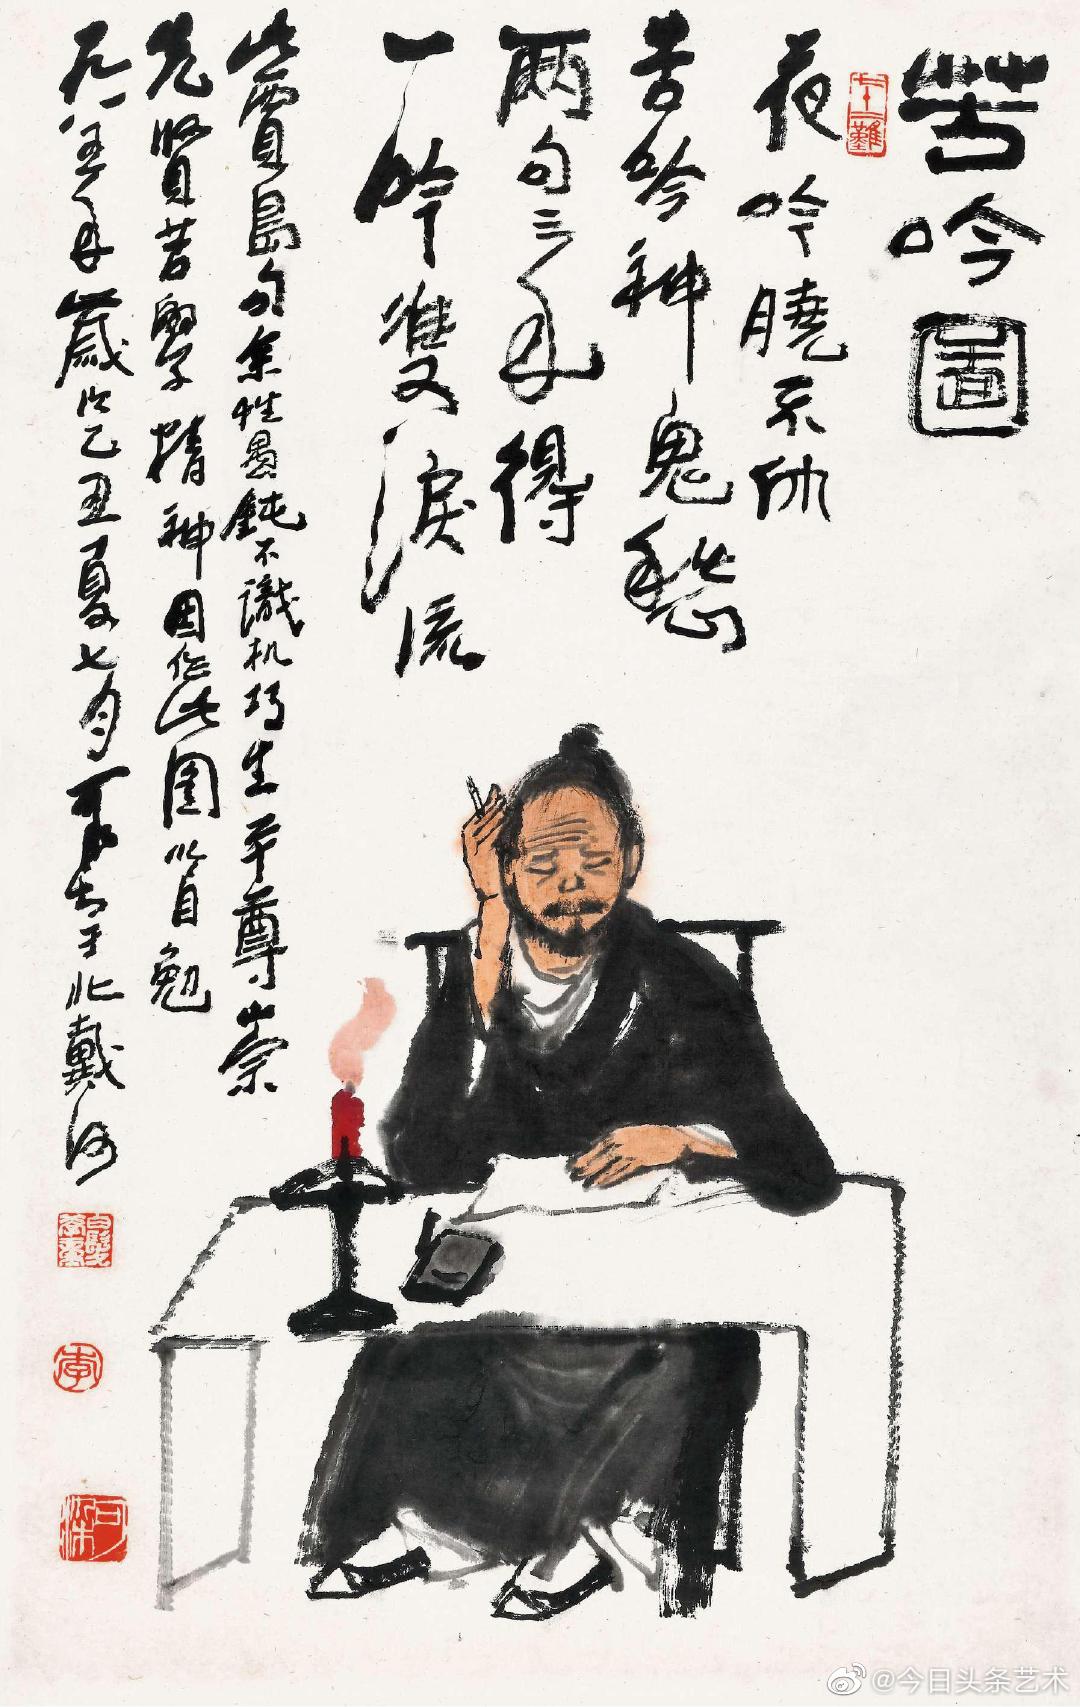 苦吟圖
七十二難
夜吟曉不休
苦吟神鬼愁
兩句三年得
一吟雙淚流
此賈島句余性愚鈍不識机巧生平尊崇
先賢苦學精神因作此圖以自勉
一九八五年歲次乙丑夏七月可染于北戴河
白髮學童
李
可染
@今日头条艺术